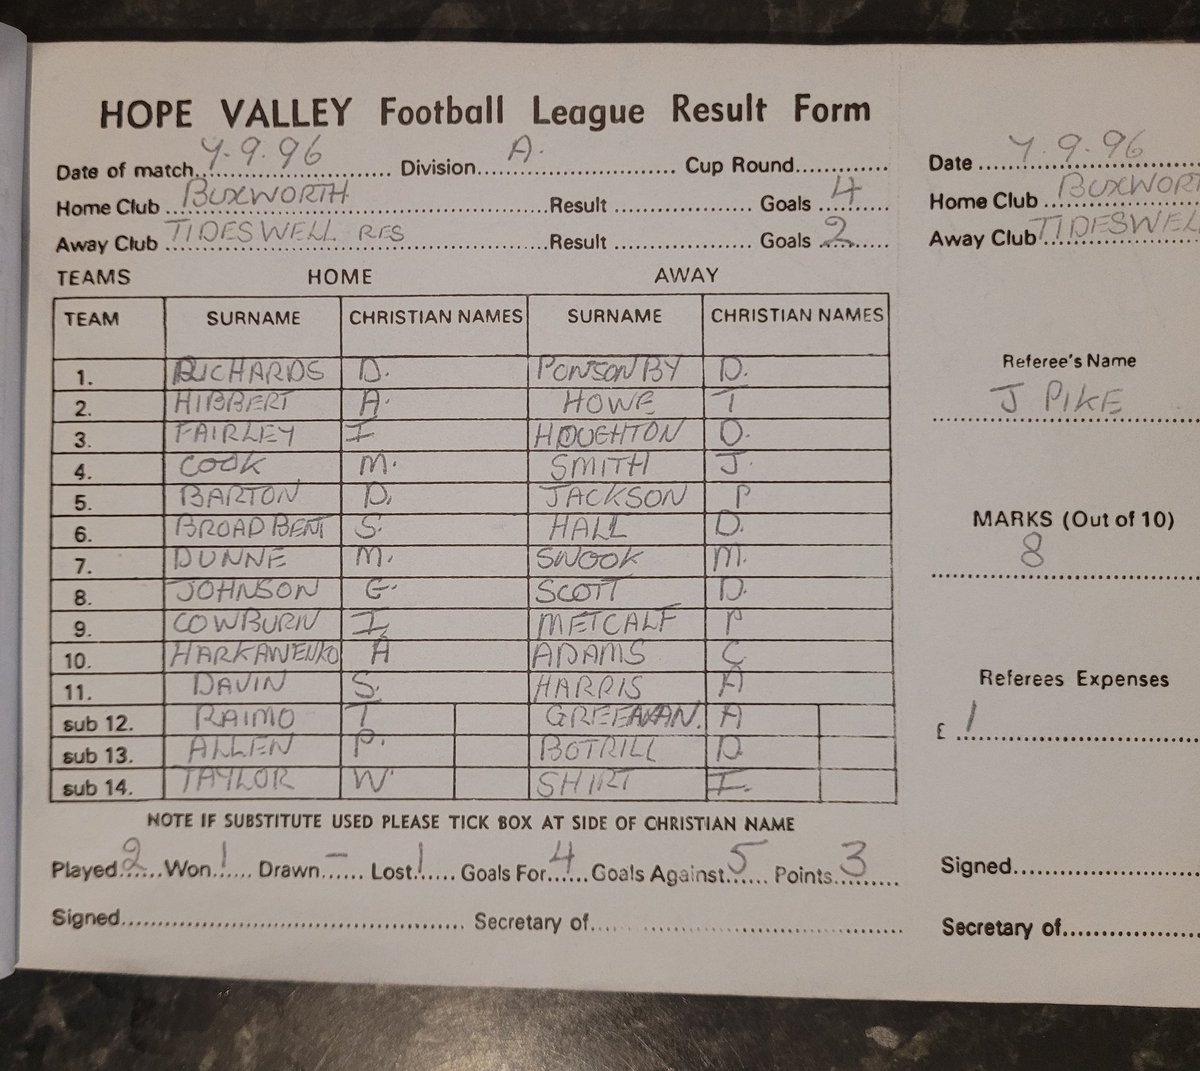 HOPE VALLEY Football League Result Form
Date of match 7.9.96 Division A. Cup Round
Home Club BUXWORTH Result Goals 4
Away Club TIDESWELL RES Result Goals 2
TEAMS HOME AWAY
TEAM SURNAME CHRISTIAN NAMES SURNAME CHRISTIAN NAMES
1. RICHARDS D. PONSONBY D.
2. HIBBERT A. HOWE T
3. FAIRLEY I HOUGHTON O.
4. COOK M. SMITH J.
5. BARTON D. JACKSON P
6. BROADBENT S. HALL D.
7. DUNNE M. SWOOK M.
8. JOHNSON G. SCOTT D.
9. COWBURN I. METCALF P
10. HARKAWENKO A ADAMS C
11. DAVIN S. HARRIS A
sub 12. RAIMO T A
sub 13. ALLEN P. BOTRILL D.
sub 14. TAYLOR W. SHIRT I.
NOTE IF SUBSTITUTE USED PLEASE TICK BOX AT SIDE OF CHRISTIAN NAME
Played 2 Won 1 Drawn – Lost 1 Goals For 4 Goals Against 5 Points 3
Signed Secretary of
Date 7.9.96
Home Club BUXWORT
Away Club TIDESWEL
Referee's Name
J PIKE
MARKS (Out of 10)
8
Referees Expenses
£ 1
Signed
Secretary of